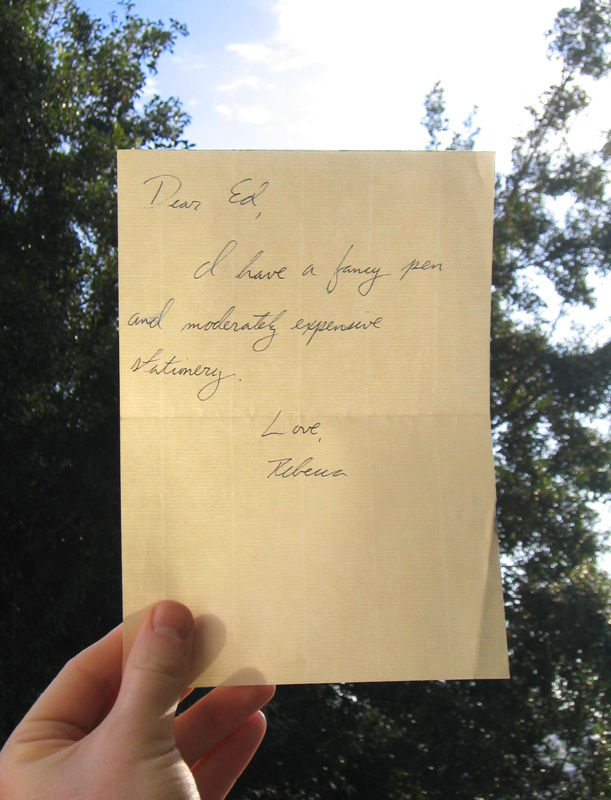 Dear Ed,
I have a fancy pen
and moderately expensive
stationery.
Love,
Rebecca